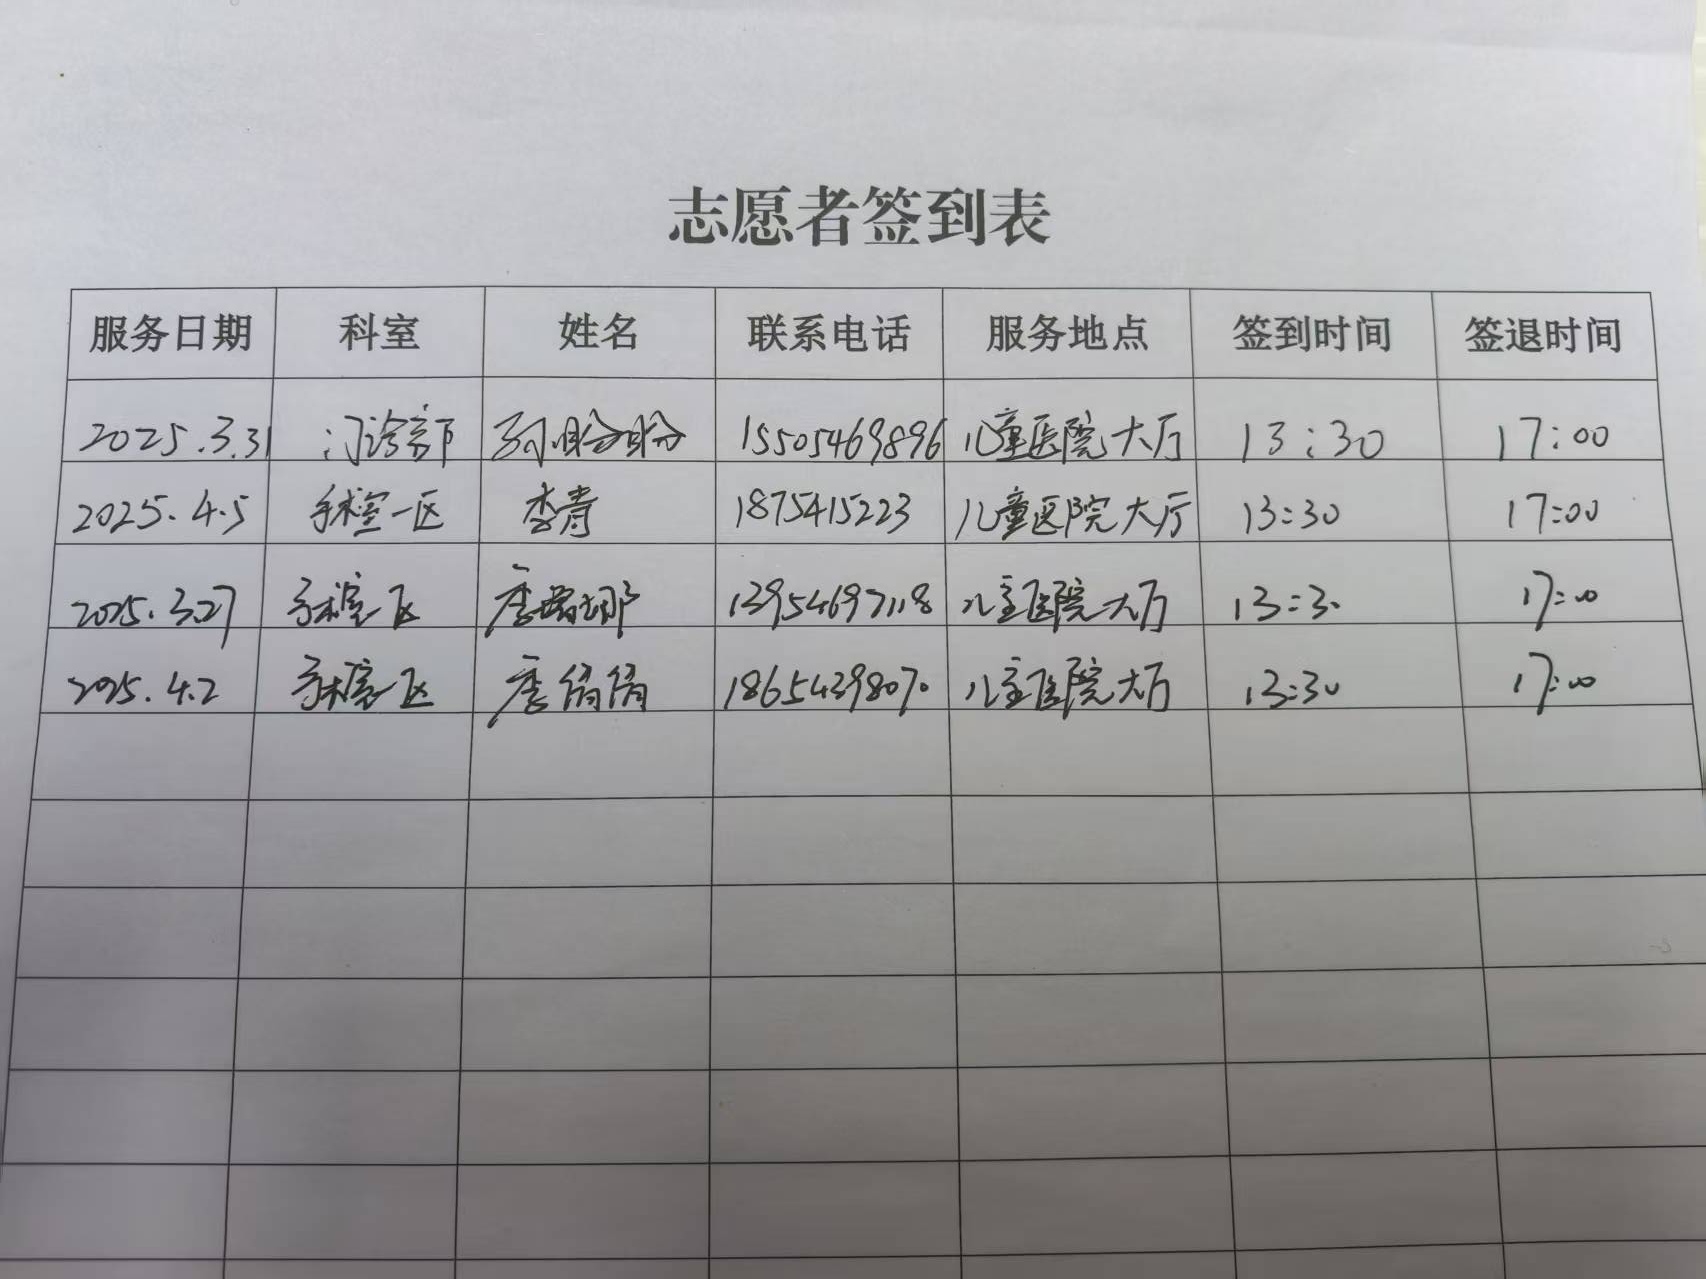 志愿者签到表
服务日期 科室 姓名 联系电话 服务地点 签到时间 签退时间
2025.3.31 门诊部 孙盼盼 15505469896 儿童医院大厅 13:30 17:00
2025.4.5 手术室一区 李青 1875415223 儿童医院大厅 13:30 17:00
2025.3.27 手术室一区 李 娜 13954697118 儿童医院大厅 13:30 17:00
2025.4.2 手术室一区 李倩倩 18654398070 儿童医院大厅 13:30 17:00